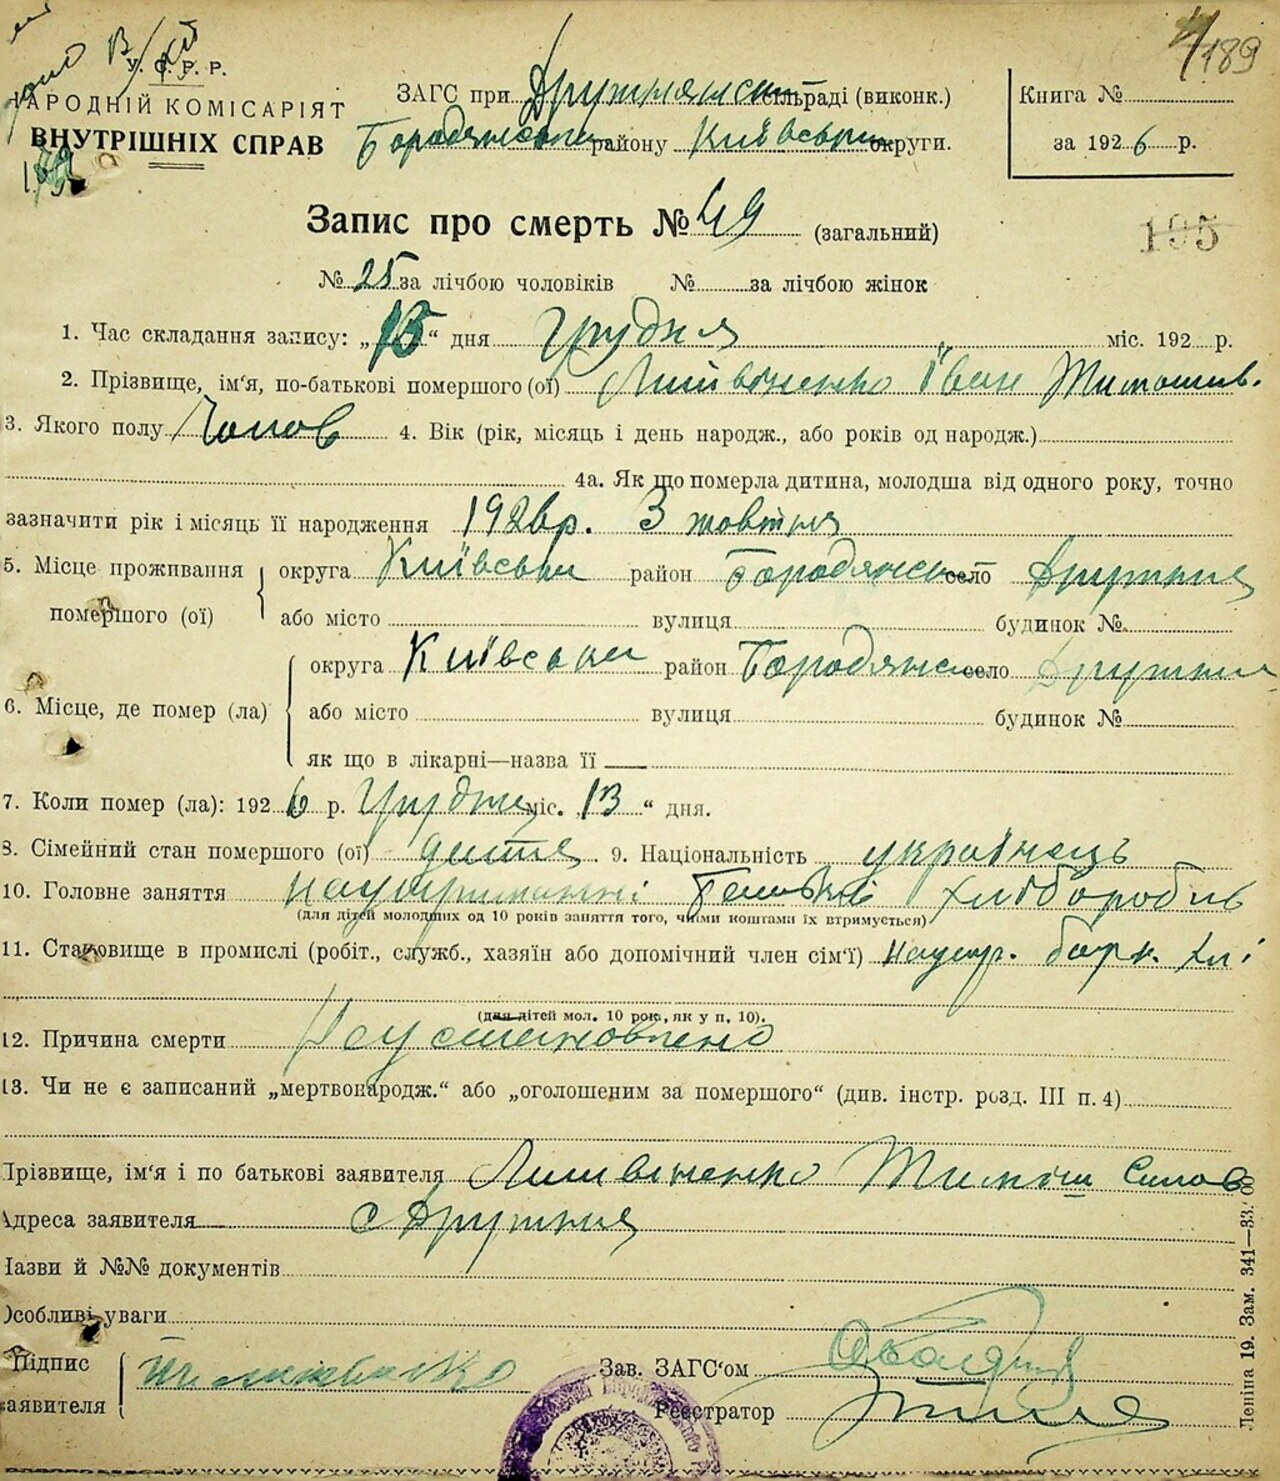 189
У. С. Р. Р.
НАРОДНІЙ КОМІСАРІЯТ
ВНУТРІШНІХ СПРАВ
ЗАГС при Дружнянськ сільраді (виконк.)
Бородянськ району Київськи округи.
Книга №
за 1926 р.
Запис про смерть № 49 (загальний)
195
№ 25 за лічбою чоловіків № за лічбою жінок
1. Час складання запису: „15“ дня Грудня міс. 192 р.
2. Прізвище, ім'я, по-батькові помершого (ої) Литвіненко Іван Тимошив.
3. Якого полу Чолов 4. Вік (рік, місяць і день народж., або років од народж.)
4а. Як що померла дитина, молодша від одного року, точно
зазначити рік і місяць її народження 1926р. 3 жовтня
5. Місце проживання помершого (ої) округа Київськи район Бородянськ село Дружня
або місто вулиця будинок №
6. Місце, де помер (ла) округа Київськи район Бородянськ село Дружня
або місто вулиця будинок №
як що в лікарні—назва її
7. Коли помер (ла): 1926 р. Грудня міс. „13“ дня.
8. Сімейний стан помершого (ої) дитя 9. Національність українець
10. Головне заняття на утриманні хлібороб
(для дітей молодших од 10 років заняття того, чиїми коштами їх втримується)
11. Становище в промислі (робіт., служб., хазяїн або допомічний член сім'ї)
(для дітей мол. 10 рок., як у п. 10).
12. Причина смерти Неустановлено
13. Чи не є записаний „мертвонародж.“ або „оголошеним за помершого“ (див. інстр. розд. III п. 4)
Прізвище, ім'я і по батькові заявителя Литвіненко Тиміш Силов
Адреса заявителя с Дружня
Назви й №№ документів
Особливі уваги
Підпис заявителя
Зав. ЗАГС'ом
Реєстратор
Леніна 19. Зам. 341—33.